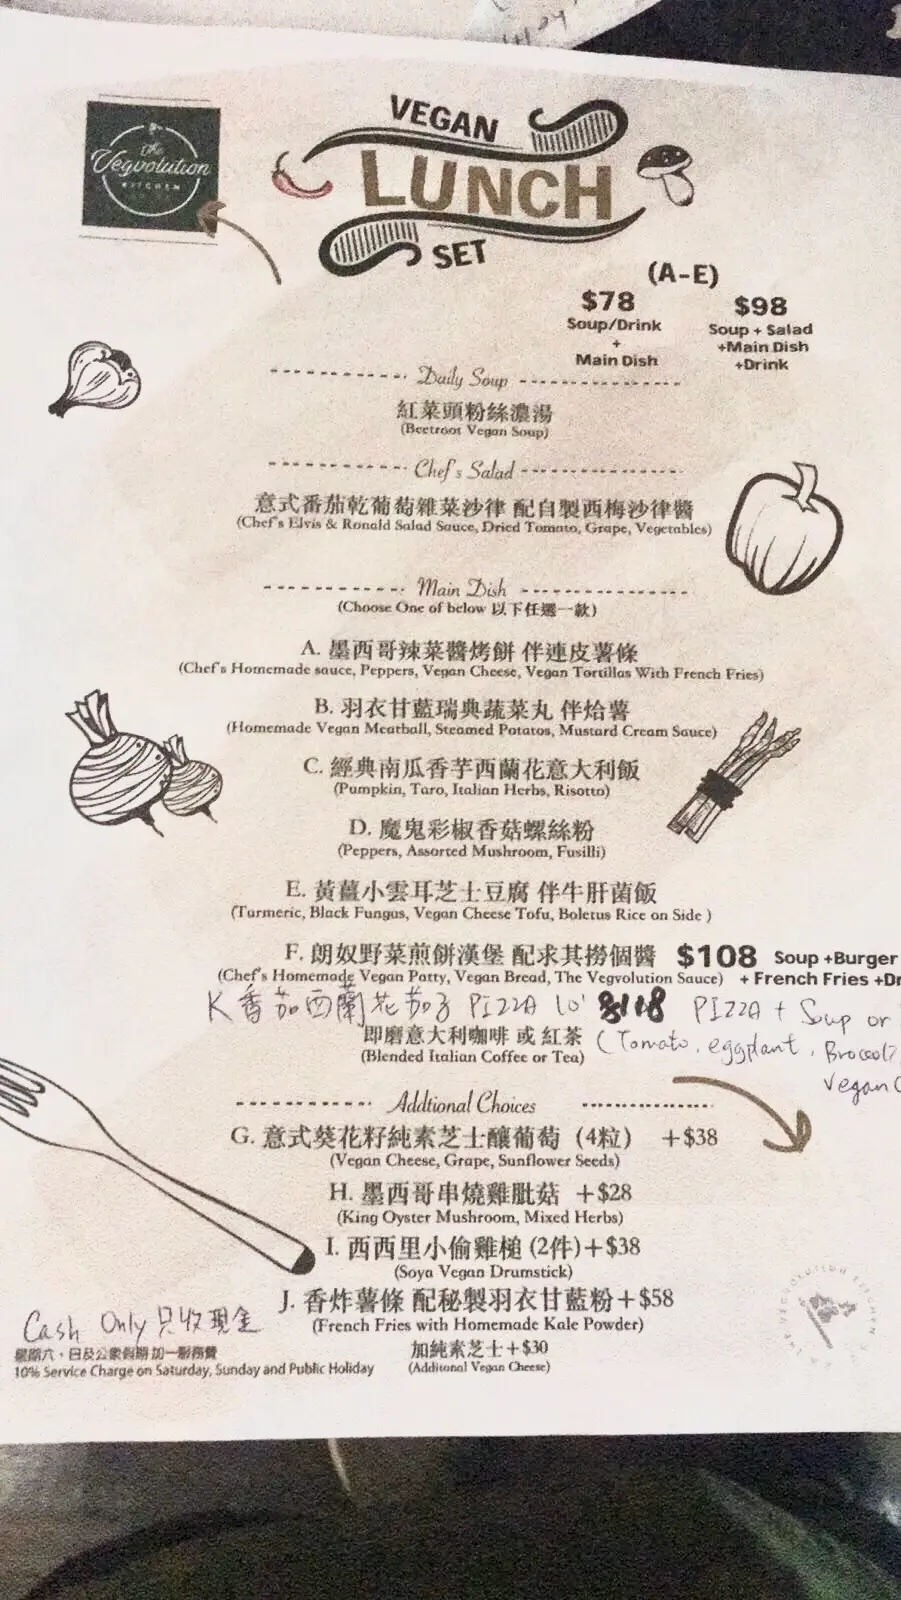 The
Vegvolution
KITCHEN
VEGAN
LUNCH
SET
(A-E)
$78
Soup/Drink
+
Main Dish
$98
Soup + Salad
+Main Dish
+Drink
Daily Soup
紅菜頭粉絲濃湯
(Beetroot Vegan Soup)
Chef's Salad
意式番茄乾葡萄雜菜沙律 配自製西梅沙律醬
(Chef's Elvis & Ronald Salad Sauce, Dried Tomato, Grape, Vegetables)
Main Dish
(Choose One of below 以下任選一款)
A. 墨西哥辣菜醬烤餅 伴連皮薯條
(Chef's Homemade sauce, Peppers, Vegan Cheese, Vegan Tortillas With French Fries)
B. 羽衣甘藍瑞典蔬菜丸 伴烚薯
(Homemade Vegan Meatball, Steamed Potatos, Mustard Cream Sauce)
C. 經典南瓜香芋西蘭花意大利飯
(Pumpkin, Taro, Italian Herbs, Risotto)
D. 魔鬼彩椒香菇螺絲粉
(Peppers, Assorted Mushroom, Fusilli)
E. 黃薑小雲耳芝士豆腐 伴牛肝菌飯
(Turmeric, Black Fungus, Vegan Cheese Tofu, Boletus Rice on Side )
F. 朗奴野菜煎餅漢堡 配求其撈個醬 $108 Soup +Burger
(Chef's Homemade Vegan Patty, Vegan Bread, The Vegvolution Sauce) + French Fries +Dr
K 番茄西蘭花茄子 PIZZA 10" $118 PIZZA + Soup or
即磨意大利咖啡 或 紅茶 (Tomato, eggplant, Broccoli,
(Blended Italian Coffee or Tea) Vegan C
Addtional Choices
G. 意式葵花籽純素芝士釀葡萄 (4粒) +$38
(Vegan Cheese, Grape, Sunflower Seeds)
H. 墨西哥串燒雞肶菇 +$28
(King Oyster Mushroom, Mixed Herbs)
I. 西西里小偷雞槌 (2件)+$38
(Soya Vegan Drumstick)
J. 香炸薯條 配秘製羽衣甘藍粉+$58
(French Fries with Homemade Kale Powder)
加純素芝士+$30
(Additonal Vegan Cheese)
Cash Only 只收現金
星期六，日及公眾假期加一服務費
10% Service Charge on Saturday, Sunday and Public Holiday